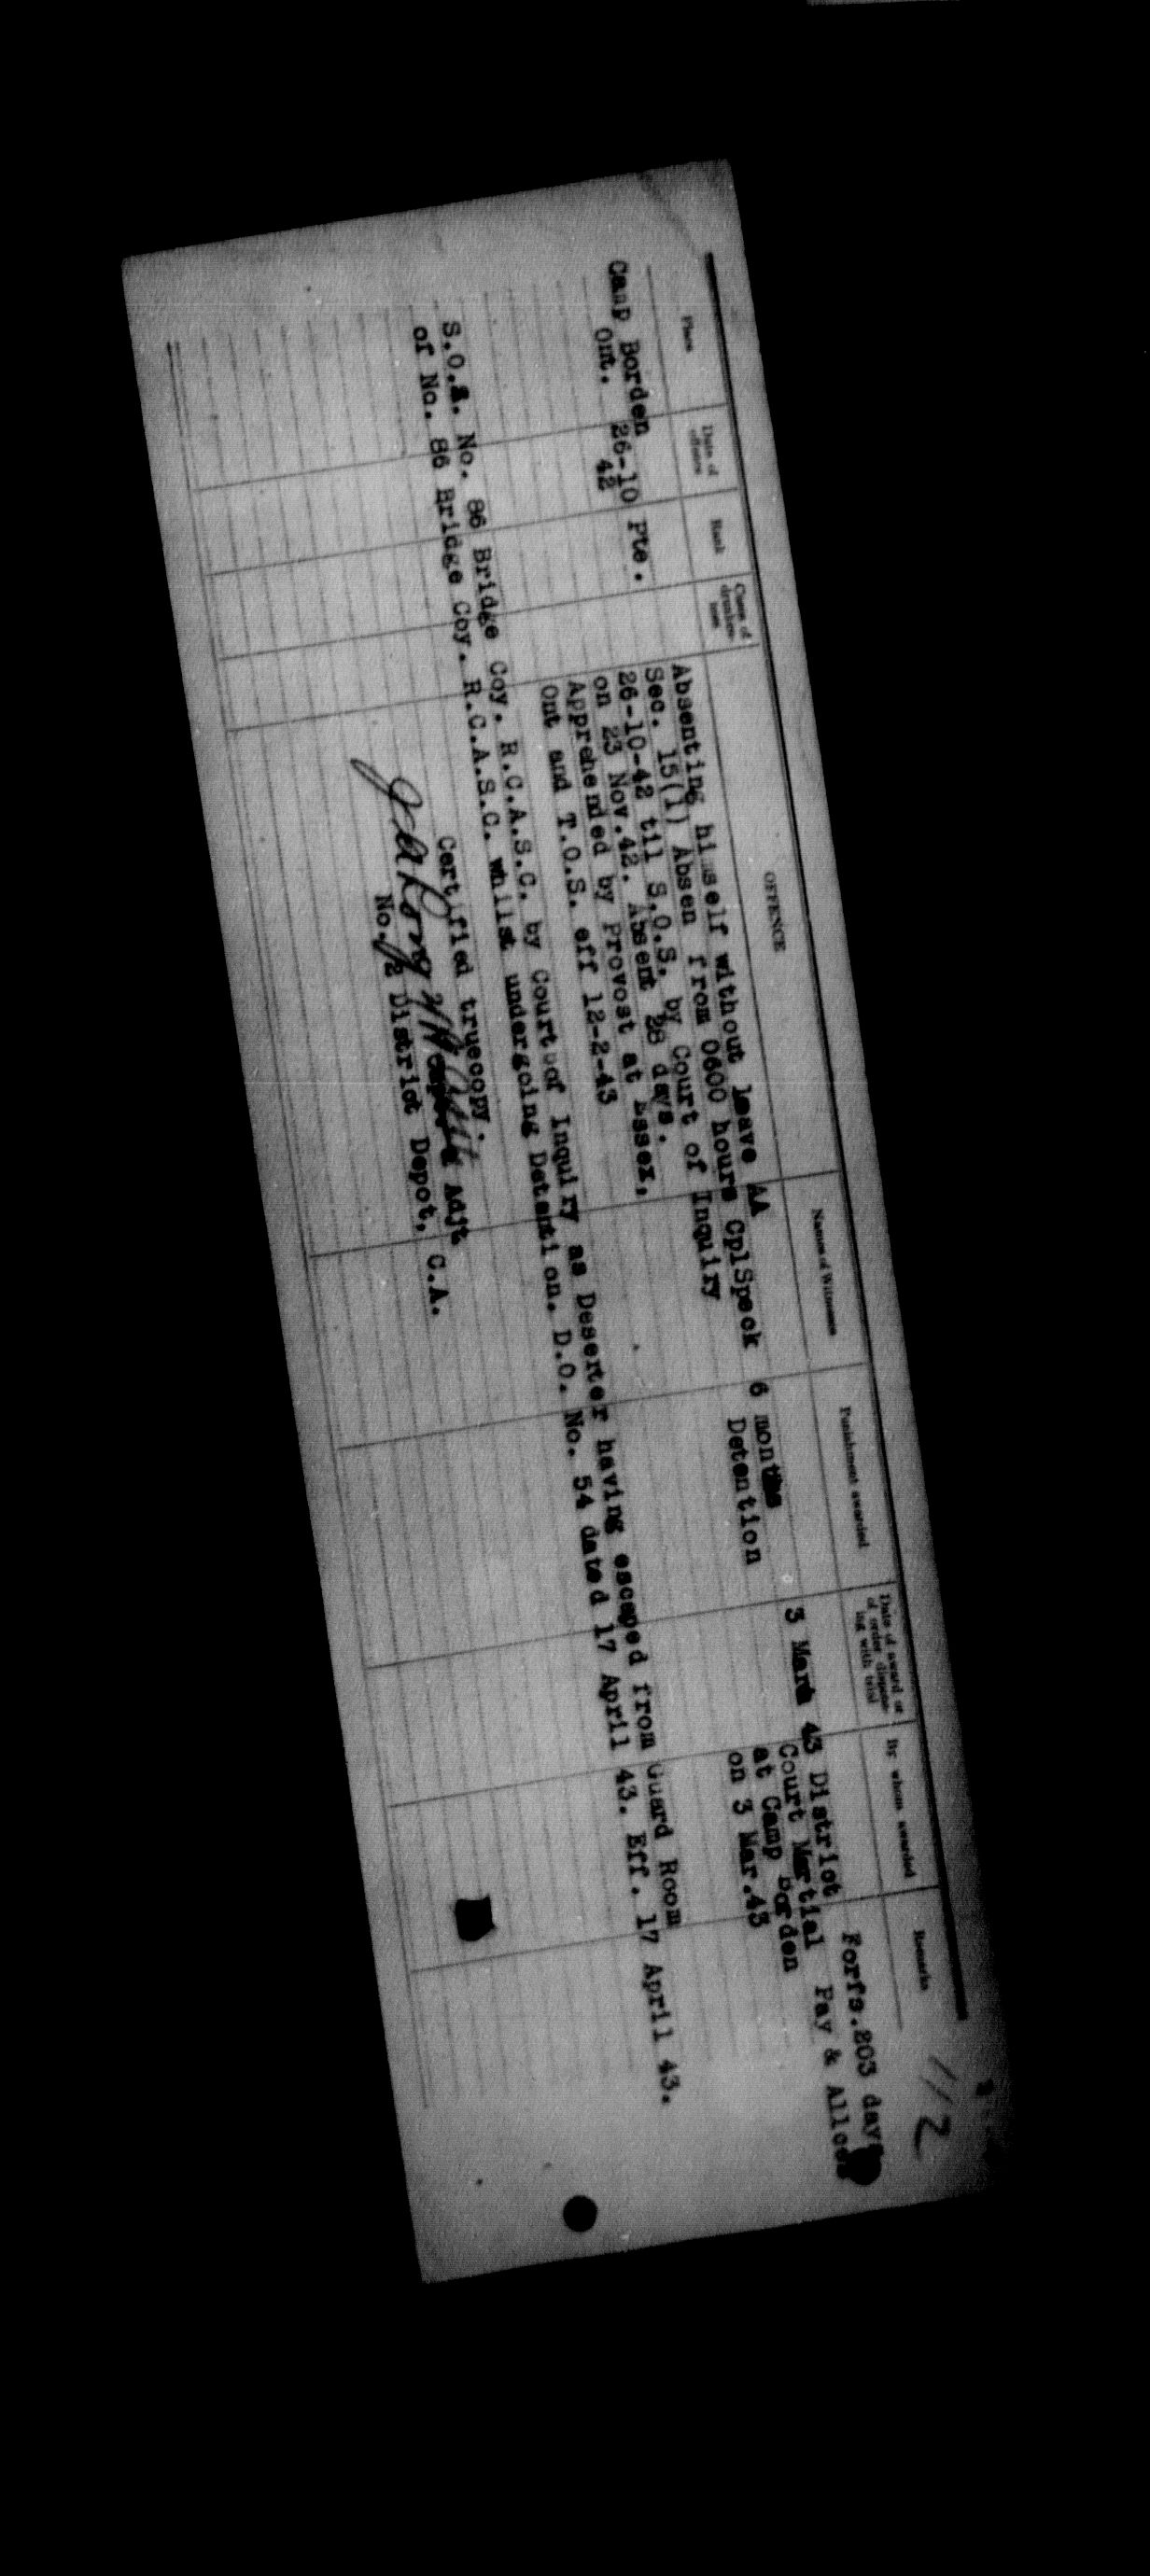 112
Place Date of offence Rank Class of drunkenness OFFENCE Names of Witnesses Punishment awarded Date of award or of order dispensing with trial By whom awarded Remarks
Camp Borden 26-10 Pte. Absenting himself without leave AA 6 months 3 Marc 43 District Forfs.203 days
Ont. 42 Sec. 15(1) Absen from 0600 hours CplSpeck Detention Court Martial Pay & Allces
26-10-42 til S.O.S. by Court of Inquiry at Camp Borden
on 23 Nov.42. Absent 28 days. on 3 Mar.43
Apprehended by Provost at Essex,
Ont and T.O.S. eff 12-2-43
S.O.S. No. 86 Bridge Coy. R.C.A.S.C. by Court of Inquiry as Deserter having escaped from Guard Room
of No. 86 Bridge Coy. R.C.A.S.C. whilst undergoing Detention. D.O. No. 54 dated 17 April 43. Eff. 17 April 43.
Certified truecopy.
Adjt
No. 2 District Depot, C.A.